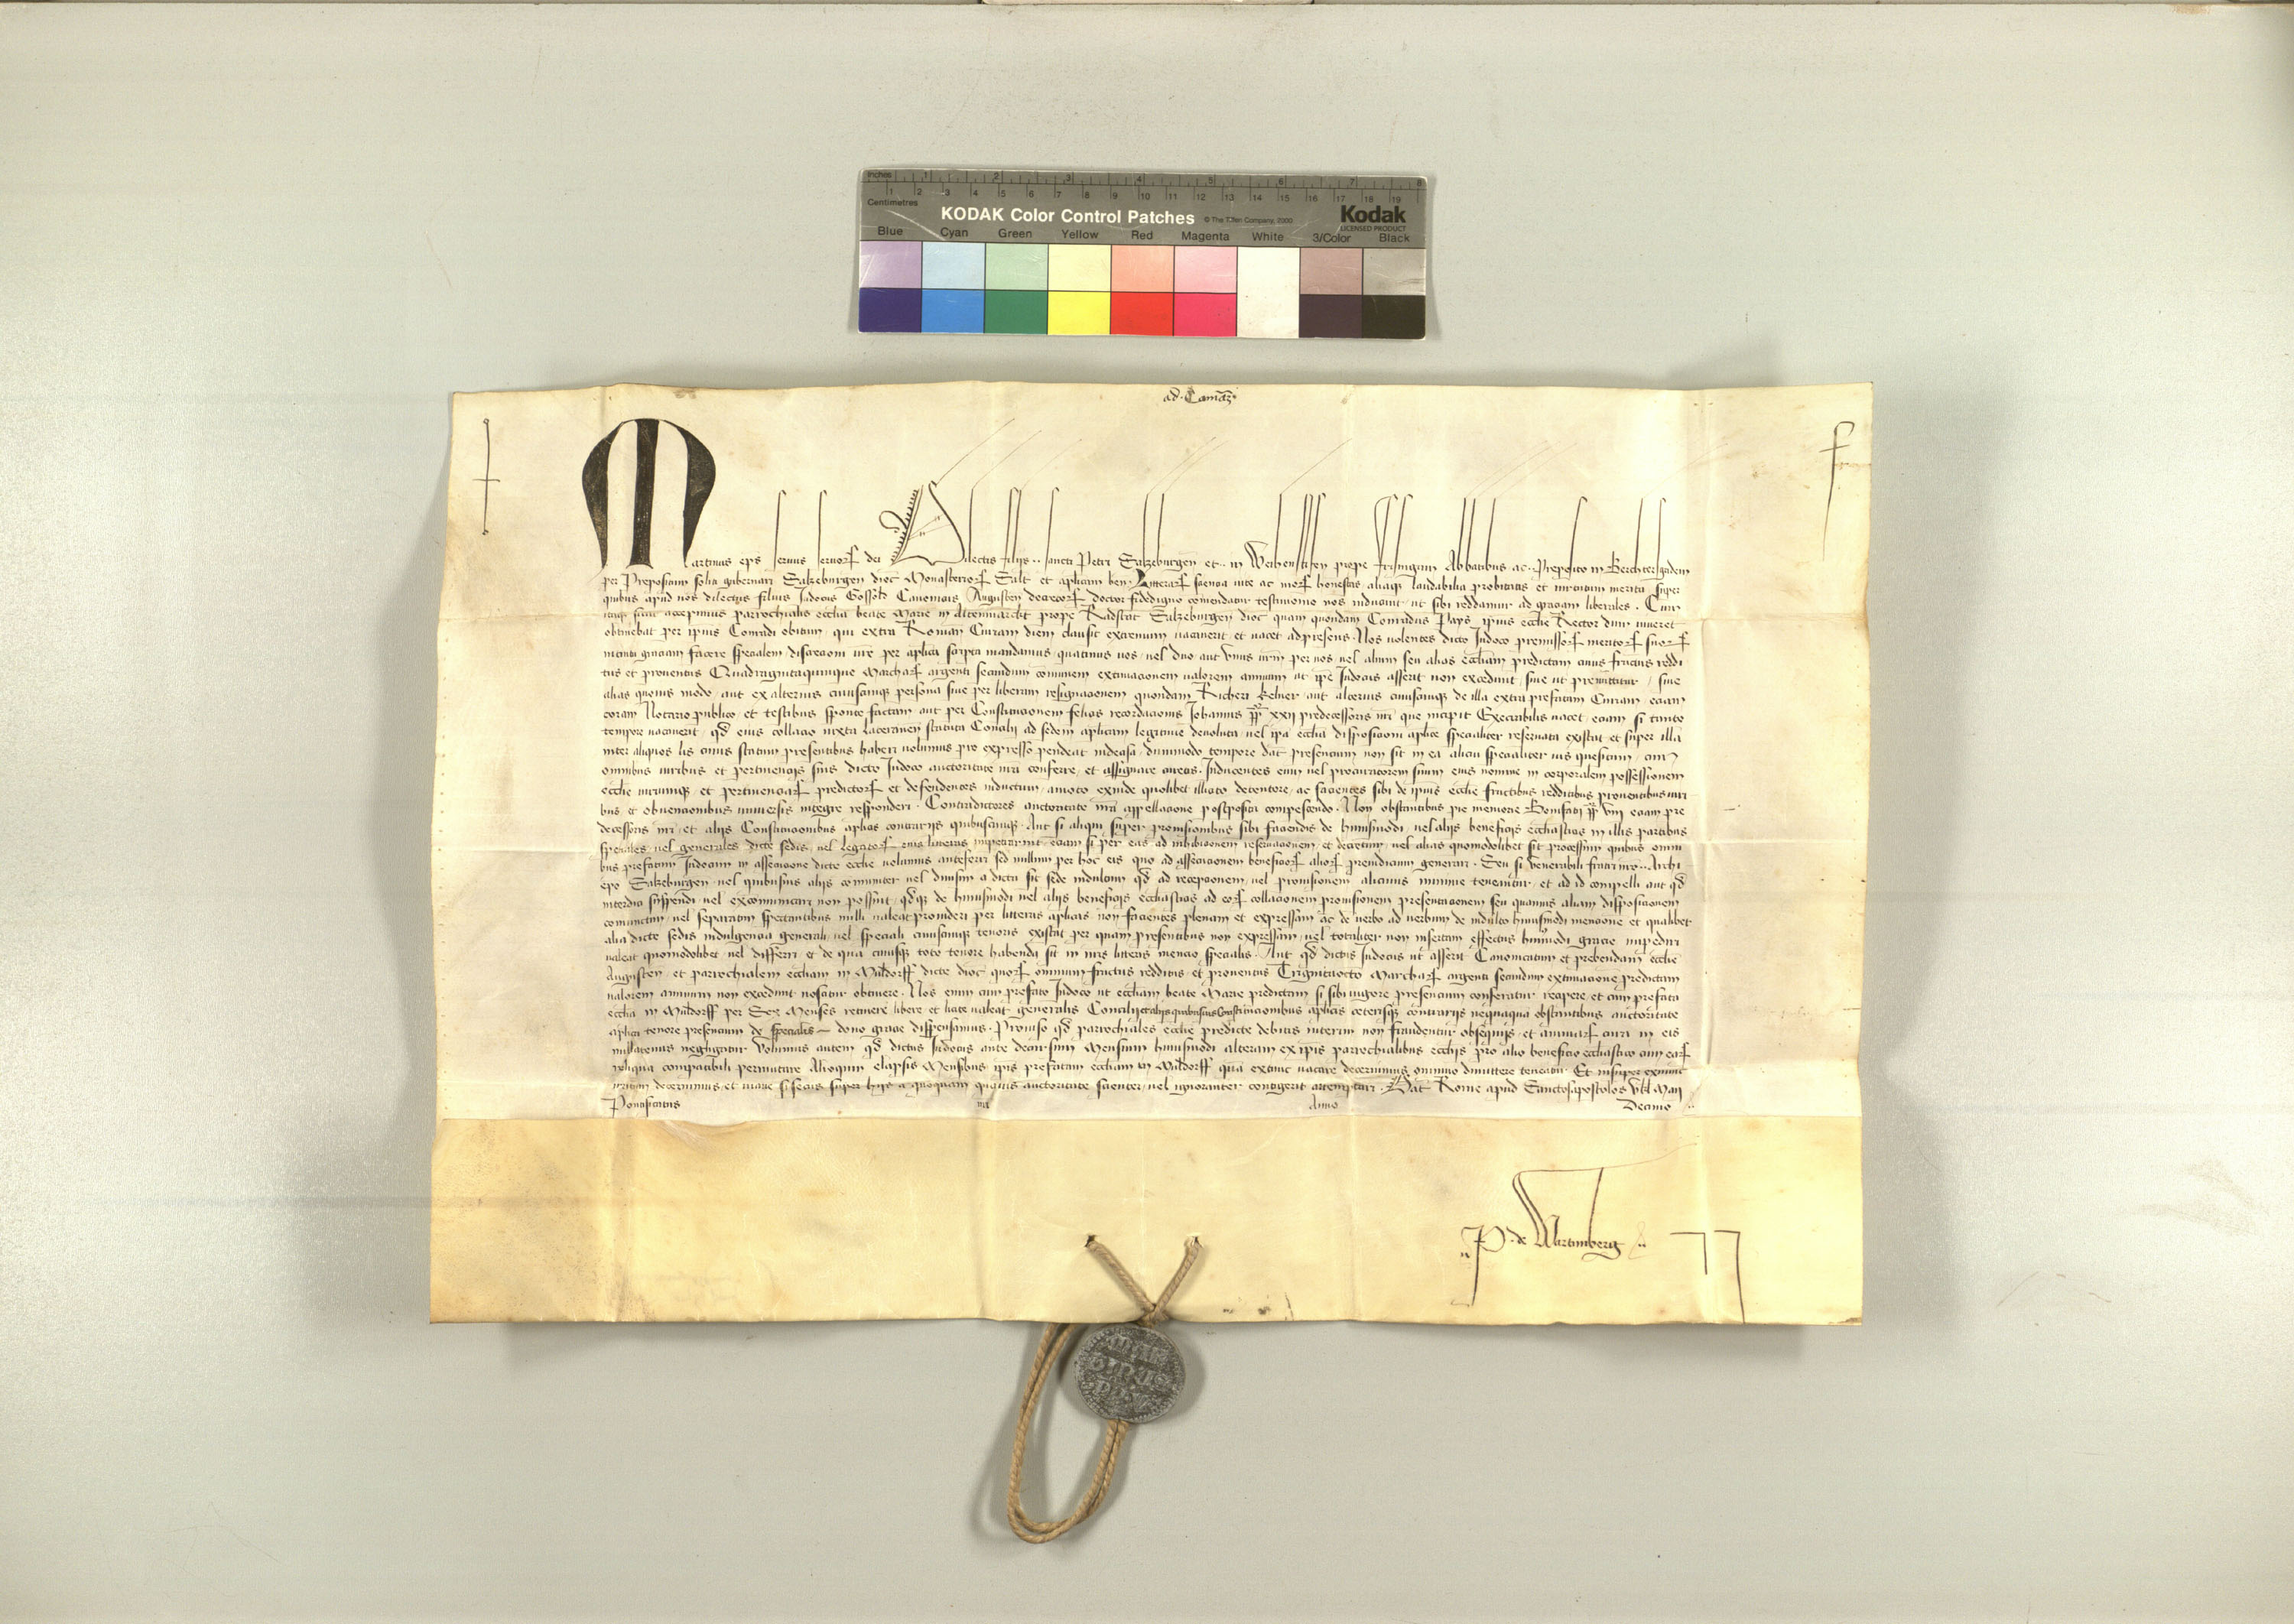 Inches 1 2 3 4 5 6 7 8
Centimetres 1 2 3 4 5 6 7 8 9 10 11 12 13 14 15 16 17 18 19
KODAK Color Control Patches © The Tiffen Company, 2000 Kodak
LICENSED PRODUCT
Blue Cyan Green Yellow Red Magenta White 3/Color Black
ad Camam
Martinus eps servus servorꝝ dei Dilectis filijs .. sancti Petri Salzeburgen et .. in Weihensteffen prope Frisingam Abbatibus ac .. Preposito in Berchtersgadem
per Prepositum solita gubernari Salzeburgen dioc Monasteriorꝝ Salt et aplicam ben. Litterarꝝ sciencia vite ac morꝝ honestas aliaqꝫ laudabilia probitatis et virtutum merita super
quibus apud nos dilectus filius Judocus Canonicus Augusten decretorꝝ doctor fidedigno comendatur testimonio nos inducunt ut sibi reddamur ad graciam liberales . Cum
itaqꝫ sicut accepimus parrochialis ecclia beate Marie in Altenmarckt prope Radstat Salzeburgen dioc quam quondam Conradus Pays ipius ecclie Rector dum viveret
obtinebat per ipius Conradi obitum qui extra Romanam Curiam diem clausit extremum vacaverit et vacet ad presens . Nos volentes dicto Judoco premissorꝝ meritorꝝ suorꝝ
intuitu graciam facere specialem discrecioni vre per aplica scripta mandamus quatinus vos vel duo aut unus vrm per vos vel alium seu alios eccliam predictam cuius fructus reddi
tus et proventus Quadragintaquinque Marcharꝝ argenti secundum comunem extimacionem valorem annuum ut ipe Judocus asserit non excedunt sive ut premittitur sive
alias quovis modo aut ex alterius cuiuscunqꝫ persona sive per liberam resignacionem quondam Richeri Kelner aut alterius cuiuscunqꝫ de illa extra prefatam Curiam eciam
coram Notario publico et testibus sponte factam aut per Constitucionem felicis recordacionis Johannis pp xxij predecessoris nri que incipit Execrabilis vacet eciam si tanto
tempore vacaverit qd eius collacio iuxta Lateranen statuta Concilij ad sedem aplicam legitime devoluta vel ipa ecclia disposicioni aplice specialiter reservata existat et super illa
inter aliquos lis cuius statum presentibus haberi volumus pro expresso pendeat indecisa dummodo tempore dat presencium non sit in ea alicui specialiter ius quesitum cum
omnibus iuribus et pertinencijs suis dicto Judoco auctoritate nra conferre et assignare curetis . Inducentes eum vel procuratorem suum eius nomine in corporalem possessionem
ecclie iuriumqꝫ et pertinenciarꝝ predictorꝝ et defendentes inductum amoto exinde quolibet illicito detentore ac facientes sibi de ipius ecclie fructibus redditibus proventibus iuri
bus et obvencionibus universis integre responderi . Contradictores auctoritate nra appellacione postposita compescendo . Non obstantibus pie memorie Bonifacij pp viij eciam pre
decessoris nri et alijs Constitucionibus aplicis contrarijs quibuscunqꝫ . Aut si aliqui super provisionibus sibi faciendis de huiusmodi vel alijs beneficijs ecclesiasticis in illis partibus
speciales vel generales dicte sedis vel Legatorꝝ eius litteras impetrarint eciam si per eas ad inhibicionem reservacionem et decretum vel alias quomodolibet sit processum quibus omni
bus prefatum Judocum in assecucione dicte ecclie volumus anteferri sed nullum per hoc eis quo ad assecucionem beneficiorꝝ aliorꝝ preiudicium generari . Seu si Venerabili fratri nro .. Archi
epo Salzeburgen vel quibusvis alijs comuniter vel divisim a dicta sit sede indultum qd ad recepcionem vel provisionem alicuius minime teneantur et ad id compelli aut qd
interdici suspendi vel excomunicari non possint qdqꝫ de huiusmodi vel alijs beneficijs ecclesiasticis ad eorꝝ collacionem provisionem presentacionem seu quamvis aliam disposicionem
coniunctim vel separatim spectantibus nulli valeat provideri per litteras aplicas non facientes plenam et expressam ac de verbo ad verbum de indulto huiusmodi mencionem et qualibet
alia dicte sedis indulgencia generali vel speciali cuiuscunqꝫ tenoris existat per quam presentibus non expressam vel totaliter non insertam effectus huiusmodi gracie impediri
valeat quomodolibet vel differri et de qua cuiusqꝫ toto tenore habenda sit in nris litteris mencio specialis . Aut qd dictus Judocus ut asserit Canonicatum et prebendam ecclie
Augusten et parrochialem eccliam in Muldorff dicte dioc quorꝝ omnium fructus redditus et proventus Trigintaocto Marcharꝝ argenti secundum extimacionem predictam
valorem annuum non excedunt noscitur obtinere . Nos enim cum prefato Judoco ut eccliam beate Marie predictam si sibi vigore presencium conferatur recipere et cum prefata
ecclia in Muldorff per Sex Menses retinere libere et licite valeat generalis Concilij et alijs quibusvis Constitucionibus aplicis ceterisqꝫ contrarijs nequaquam obstantibus auctoritate
aplica tenore presencium de specialis dono gracie dispensamus . Proviso qd parrochiales ecclie predicte debitis interim non fraudentur obsequijs et animarꝝ cura in eis
nullatenus negligatur Volumus autem qd dictus Judocus ante decursum Mensium huiusmodi alteram ex ipis parrochialibus ecclijs pro alio beneficio ecclesiastico cum earꝝ
reliqua compatibili permutare Alioquin elapsis Mensibus ipis prefatam eccliam in Muldorff quam extunc vacare decernimus omnino dimittere teneatur Et insuper exnunc
irritum decernimus et inane si secus super hijs a quoquam quavis auctoritate scienter vel ignoranter contigerit attemptari . Dat Rome apud Sanctosapostolos Maij
Pontificatus nri Anno Decimo
P. de Wartemberg
MAR
TINVS
PP V